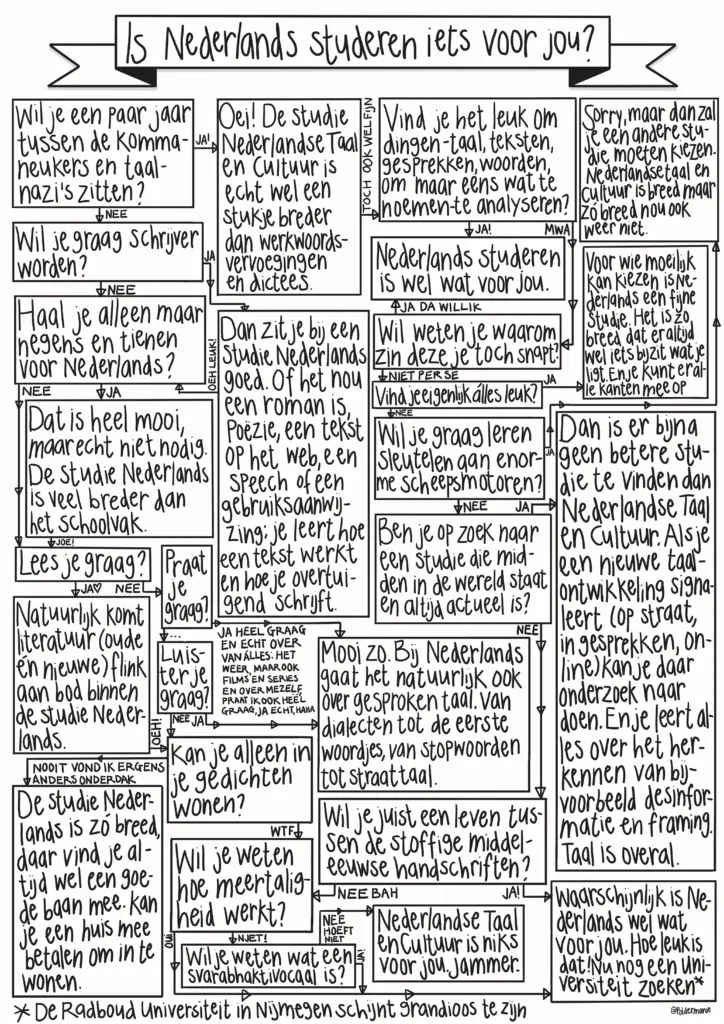 Is Nederlands studeren iets voor jou?
Wil je een paar jaar
tussen de komma-
neukers en taal-
nazi's zitten?
JA!
NEE
Oei! De studie
Nederlandse Taal
en Cultuur is
echt wel een
stukje breder
dan werkwoords-
vervoegingen
en dictees.
TOCH OOK WEL FIJN
Vind je het leuk om
dingen-taal, teksten,
gesprekken, woorden,
om maar eens wat te
noemen-te analyseren?
JA!
MWA
Sorry, maar dan zal
je een andere stu-
die moeten kiezen.
Nederlandse taal en
Cultuur is breed maar
zó breed nou ook
weer niet.
Wil je graag schrijver
worden?
JA
NEE
Nederlands studeren
is wel wat voor jou.
JA DA WILLIK
Voor wie moeilijk
kan kiezen is Ne-
derlands een fijne
studie. Het is zo
breed dat er altijd
wel iets bij zit wat je
ligt. En je kunt er al-
le kanten mee op
Haal je alleen maar
negens en tienen
voor Nederlands?
NEE
JA
OEH LEUK!
Dan zit je bij een
studie Nederlands
goed. Of het nou
een roman is,
Poëzie, een tekst
op het web, een
speech of een
gebruiksaanwij-
zing: je leert hoe
een tekst werkt
en hoe je overtui-
gend schrijft.
Wil weten je waarom
zin deze je toch snapt?
NIET PER SE
Vind je eigenlijk álles leuk?
JA
NEE
Dat is heel mooi,
maar echt niet nodig.
De studie Nederlands
is veel breder dan
het schoolvak.
JOE!
Wil je graag leren
sleutelen aan enor-
me scheepsmotoren?
JA
NEE
JA
Dan is er bijna
geen betere stu-
die te vinden dan
Nederlandse Taal
en Cultuur. Als je
een nieuwe taal-
ontwikkeling signa-
leert (op straat,
in gesprekken, on-
line) kan je daar
onderzoek naar
doen. En je leert al-
les over het her-
kennen van bij-
voorbeeld desinfor-
matie en framing.
Taal is overal.
Ben je op zoek naar
een studie die mid-
den in de wereld staat
en altijd actueel is?
NEE
Lees je graag?
JA♡
NEE!
Praat
je
graag?
...
JA HEEL GRAAG
EN ECHT OVER
VAN ÁLLES: HET
WEER, MAAR OOK
FILMS EN SERIES
EN OVER MEZELF,
PRAAT IK OOK HEEL
GRAAG, JA ECHT, HAHA
Natuurlijk komt
literatuur (oude
én nieuwe) flink
aan bod binnen
de studie Neder-
lands.
Luis-
ter je
graag?
NEE
JA
JOEH!
Mooi zo. Bij Nederlands
gaat het natuurlijk ook
over gesproken taal. Van
dialecten tot de eerste
woordjes, van stopwoorden
tot straattaal.
NOOIT VOND IK ERGENS
ANDERS ONDERDAK
Kan je alleen in
je gedichten
wonen?
WTF
De studie Neder-
lands is zó breed,
daar vind je al-
tijd wel een goe-
de baan mee. Kan
je een huis mee
betalen om in te
wonen.
Wil je juist een leven tus-
sen de stoffige middel-
eeuwse handschriften?
NEE BAH
JA!
Wil je weten
hoe meertalig-
heid werkt?
OUI
NJET!
Wil je weten wat een
svarabhaktivocaal is?
NEE
HOEFT
NIET
JA!
Nederlandse Taal
en Cultuur is niks
voor jou. Jammer.
Waarschijnlijk is Ne-
derlands wel wat
voor jou. Hoe leuk is
dat! Nu nog een uni-
versiteit zoeken*
* De Radboud Universiteit in Nijmegen schijnt grandioos te zijn
@Poldermanie